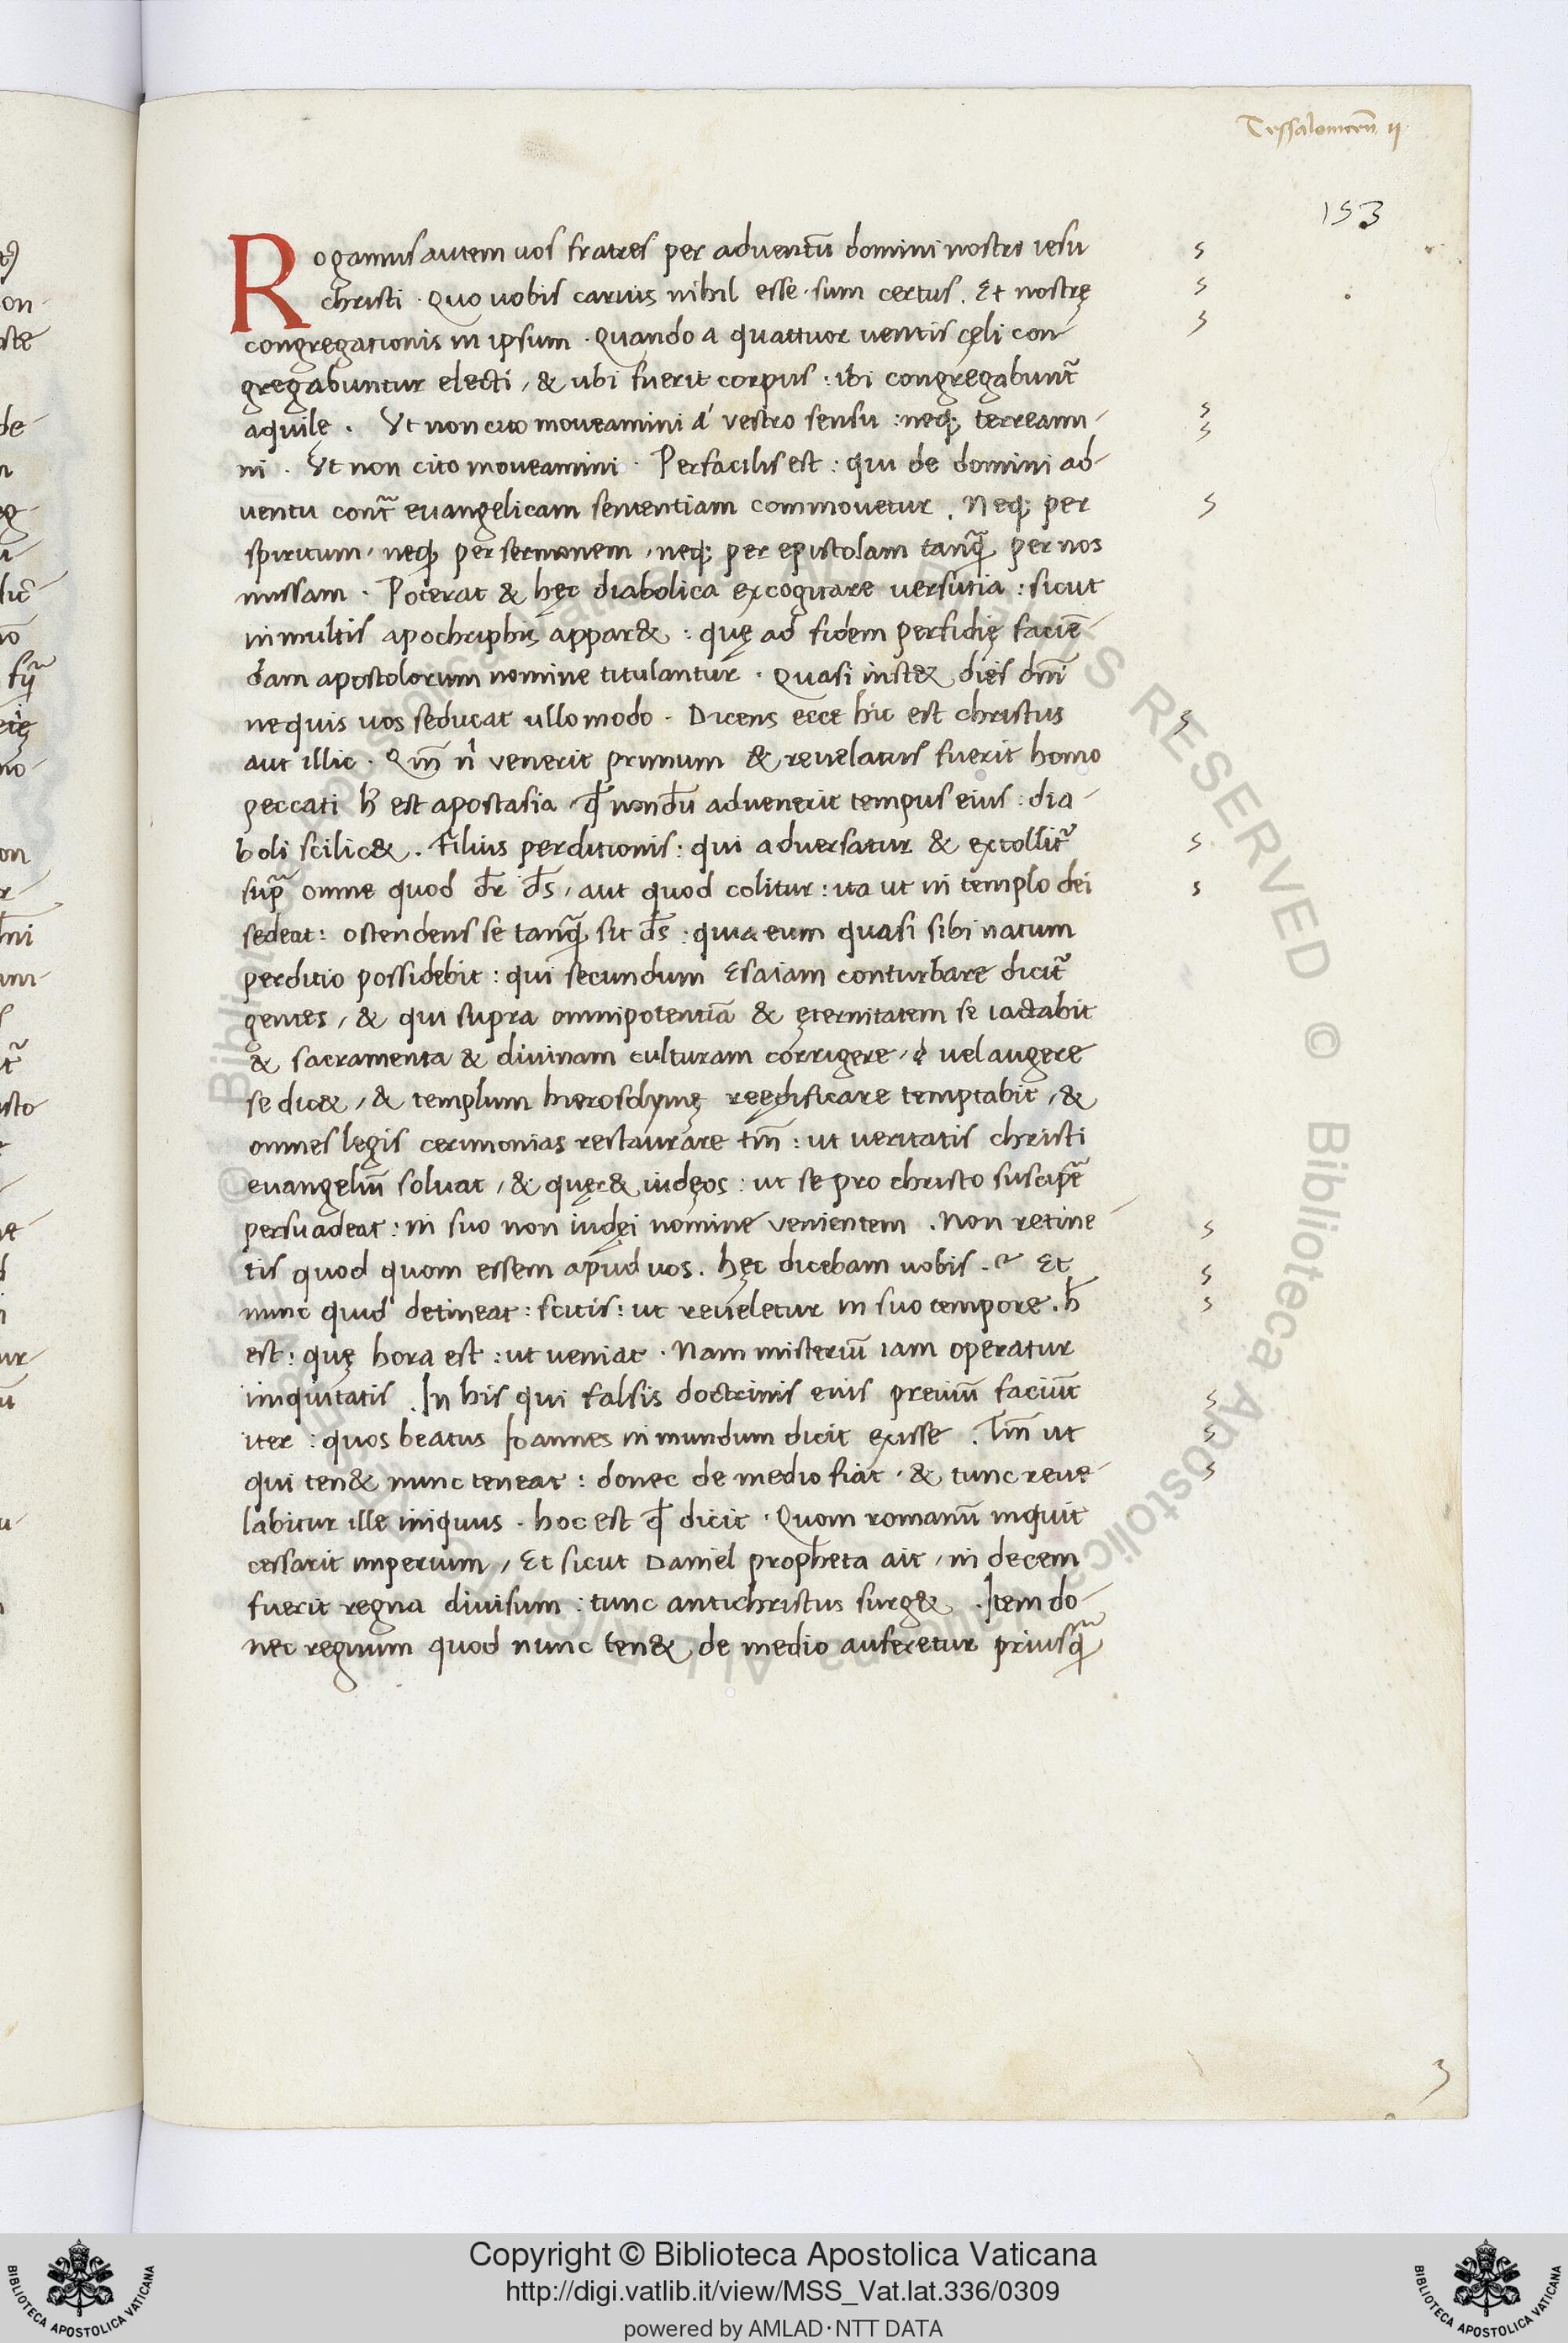 Tessalonicen̄ ij
153
Rogamus autem uos fratres per aduentū domini nostri iesu
christi . Quo uobis carius nihil esse . sum certus . Et nostrę
congregationis in ipsum . Quando a quattuor uentis cęli con
gregabuntur electi , & ubi fuerit corpus : ibi congregabunt᷑
aquilę . Vt non cito moueamini a' vestro sensu : neq; terreami-
ni . Vt non cito moueamini . Perfacilis est : qui de domini ad-
uentu cont᷑ euangelicam sententiam commouetur . Neq; per
spiritum , neq; per sermonem , neq; per epistolam tanq̃ per nos
missam . Poterat & hęc diabolica excogitare uersutia : sicut
in multis apochriphis appar& : quę ad fidem perfidię faciē-
dam apostolorum nomine titulantur . Quasi inst& dies dn̄i
ne quis uos seducat ullo modo . Dicens ecce hic est christus
aut illic . Qm̄ n̄ venerit primum & reuelatus fuerit homo
peccati h̄ est apostasia , qđ nondū aduenerit tempus eius : dia-
boli scilic& . Filius perditionis : qui aduersatur & extollit᷑
sup̄ omne quod dr̄ ds̄ , aut quod colitur : ita ut in templo dei
sedeat : ostendens se tanq̃ sit ds̄ : quia eum quasi sibi natum
perditio possidebit : qui secundum Esaiam conturbare dicit᷑
gentes , & qui supra omnipotentiā & ęternitatem se iactabit
& sacramenta & diuinam culturam corrigere , uel augere
se dic& , & templum hierosolymę reędificare temptabit , &
omnes legis cerimonias restaurare tm̄ : ut ueritatis christi
euangeliū soluat , & quęc& iudęos : ut se pro christo suscipē
persuadeat : in suo non iudęi nomine venientem . Non retine-
tis quod quom essem apud uos . hęc dicebam uobis . Et
nunc quid detineat : scitis : ut reueletur in suo tempore . h̄
est : quę hora est : ut ueniat . Nam misteriū iam operatur
iniquitatis . In his qui falsis doctrinis eius preuiū faciūt
iter : quos beatus Ioannes in mundum dicit exisse . Tm̄ ut
qui ten& nunc teneat : donec de medio fiat . & tunc reue-
labitur ille iniquus . hoc est qđ dicit . Quom romanū inquit
cessarit imperium , Et sicut Daniel propheta ait , in decem
fuerit regna diuisum : tunc antichristus surg& . Item do-
nec regnum quod nunc ten& de medio auferetur priusq̃
3
Copyright © Biblioteca Apostolica Vaticana
http://digi.vatlib.it/view/MSS_Vat.lat.336/0309
powered by AMLAD·NTT DATA
BIBLIOTECA APOSTOLICA VATICANA
BIBLIOTECA APOSTOLICA VATICANA